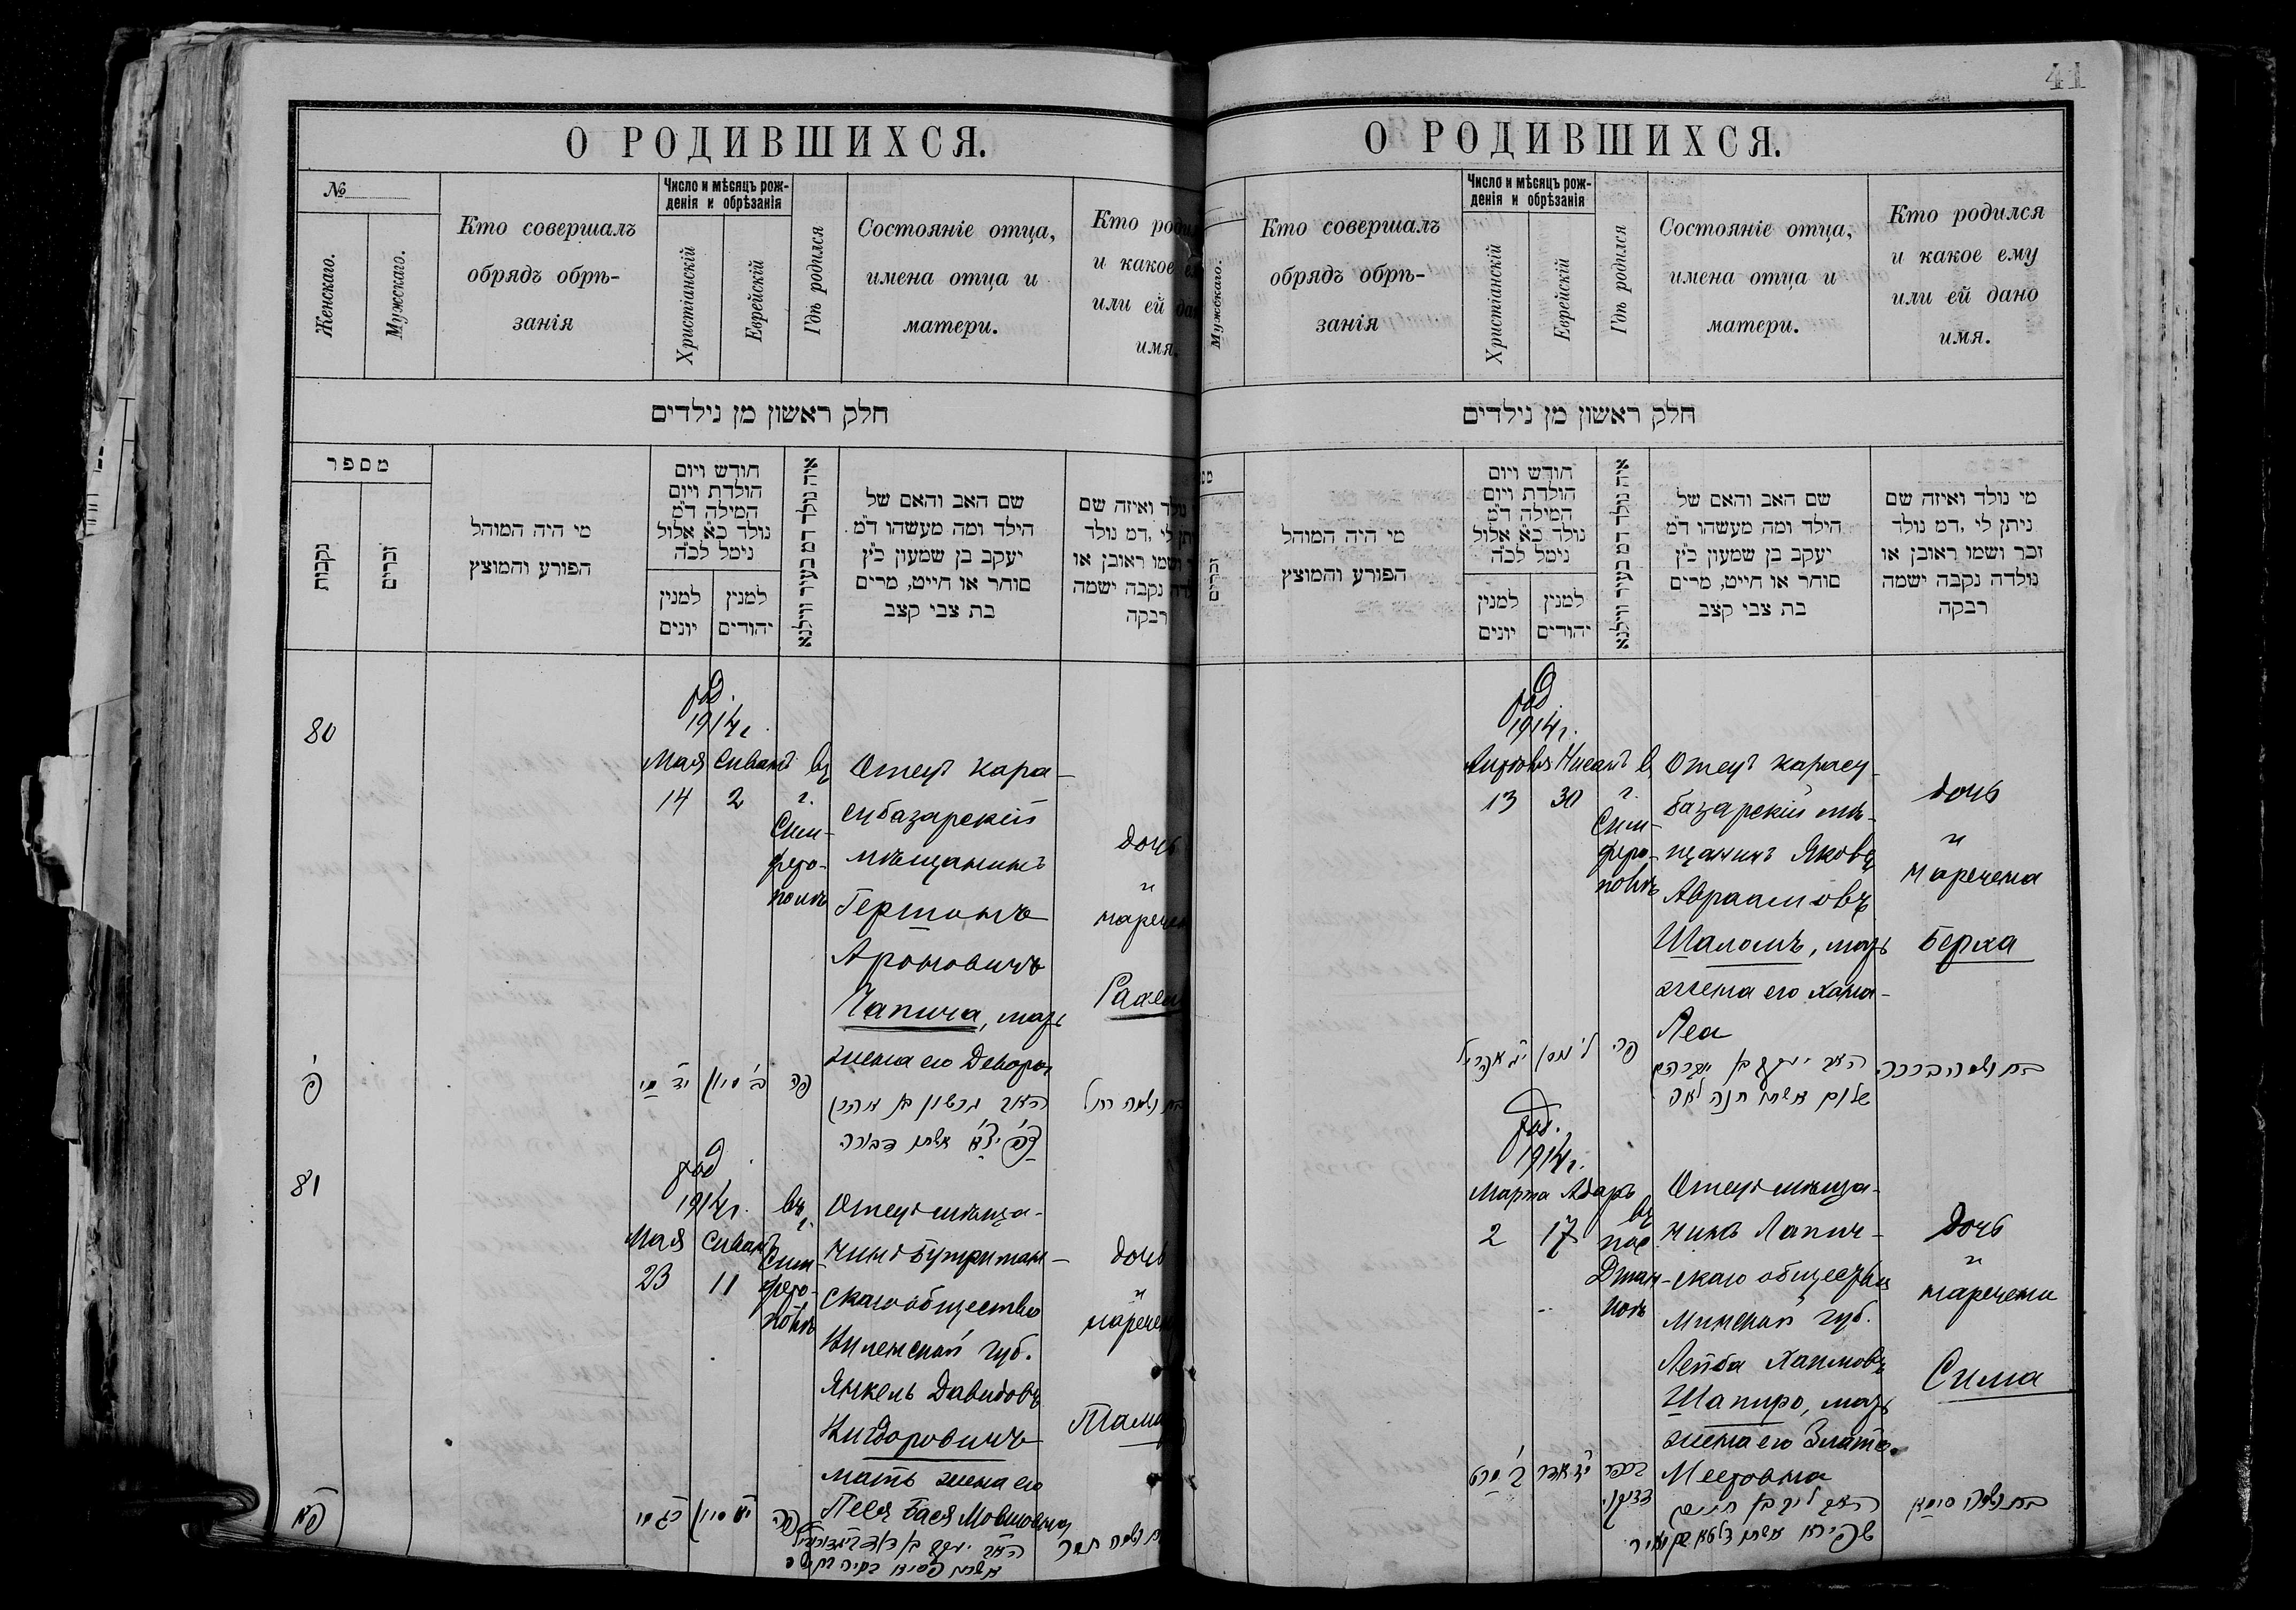 41
О РОДИВШИХСЯ.
№
Женскаго.
Мужскаго.
Кто совершалъ
обрядъ обрѣ-
занія
Число и мѣсяцъ рож-
денія и обрѣзанія
Христіанскій
Еврейскій
Гдѣ родился
Состояніе отца,
имена отца и
матери.
Кто роди
и какое
или ей да
имя.
חלק ראשון מן נילדים
מספר
נקבות
זכרים
מי היה המוהל
הפורע והמוצץ
חודש ויום
הולדת ויום
המילה ד״מ
נולד כא אלול
נימל לכ״ה
למנין
יונים
למנין
יהודים
איה נולד דמ בעיר ווילנא
שם האב והאם של
הילד ומה מעשהו ד״מ
יעקב בן שמעון כ״ץ
סוחר או חייט, מרים
בת צבי קצב
נולד ואיזה שם
תן לי ,דמ נולד
ושמו ראובן או
נקבה ישמה
רבקה
80
род.
1914 г.
Мая Сиванъ
14 2
въ
г.
Сим-
феро-
полѣ
Отецъ кара-
субазарскій
мѣщанинъ
Гершонъ
Ароновичъ
Чапича, мать
жена его Девора
дочь
и
нарече
Рахел
פ
י״ד מאי
ב׳ סיון
פה
האב גרשון בן אהרן
אשתו דבורה
בת ושמה רחל
81
род
1914 г.
Мая Сиванъ
23 11
въ г.
Сим
феро-
полѣ
Отецъ мѣща-
нинъ Бутриман-
скаго общества
Виленской губ.
Янкель Давидовъ
Вигдоровичъ
мать жена его
Песя Бася Мовшовна
дочь
и
наречен
Тама
פא
כ״ג מאי
י״א סיון
פה
האב יעקב בן דוד וויגדוראוויץ
ושמה תמר
О РОДИВШИХСЯ.
Мужскаго.
Кто совершалъ
обрядъ обрѣ-
занія
Число и мѣсяцъ рож-
денія и обрѣзанія
Христіанскій
Еврейскій
Гдѣ родился
Состояніе отца,
имена отца и
матери.
Кто родился
и какое ему
или ей дано
имя.
חלק ראשון מן נילדים
זכרים
מי היה המוהל
הפורע והמוצץ
חודש ויום
הולדת ויום
המילה ד״מ
נולד כא אלול
נימל לכ״ה
למנין
יונים
למנין
יהודים
איה נולד דמ בעיר ווילנא
שם האב והאם של
הילד ומה מעשהו ד״מ
יעקב בן שמעון כ״ץ
סוחר או חייט, מרים
בת צבי קצב
מי נולד ואיזה שם
ניתן לי ,דמ נולד
זכר ושמו ראובן או
נולדה נקבה ישמה
רבקה
род.
1914 г.
Апрѣля Нисанъ
13 30
в
г.
Сим-
феро-
полѣ
Отецъ карасу-
базарскій мѣ-
щанинъ Яковъ
Авраамовъ
Шаломъ, мать
жена его Хана-
Леа
дочь
и
наречена
Берха
י״ג אפריל
ל׳ ניסן
פה
האב יעקב בן אברהם
שלום אשתו חנה לאה
בת ושמה ברכה
род.
1914 г.
Марта Адаръ
2 17
въ
пос
Джан-
коѣ
Отецъ мѣща-
нинъ Лапич-
скаго общества
Минской губ.
Лейба Хаимовъ
Шапиро, мать
жена его Злата
Мееровна
дочь
и
наречена
Сима
ב׳ מרט
י״ז אדר
בכפר
האב ליב בן חיים
שפירא אשתו זלאטא
בת ושמה סימא